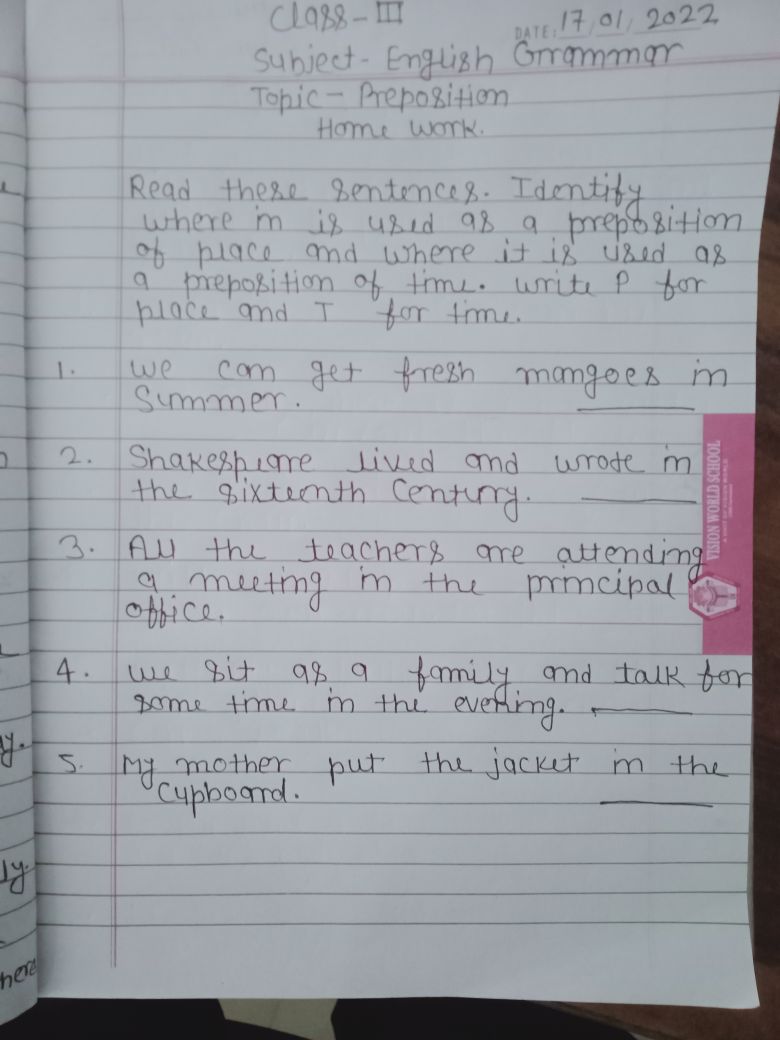 Class-III
DATE: 17/01/2022
Subject- English Grammar
Topic- Preposition
Home Work.
Read these sentences. Identify
where in is used as a preposition
of place and where it is used as
a preposition of time. write P for
place and T for time.
1. We can get fresh mangoes in
Summer. ______
2. Shakespeare lived and wrote in
the sixteenth Century. ______
3. All the teachers are attending
a meeting in the principal
office.
4. We sit as a family and talk for
some time in the evening. ______
5. My mother put the jacket in the
Cupboard. ______
VISION WORLD SCHOOL
y.
ly.
here